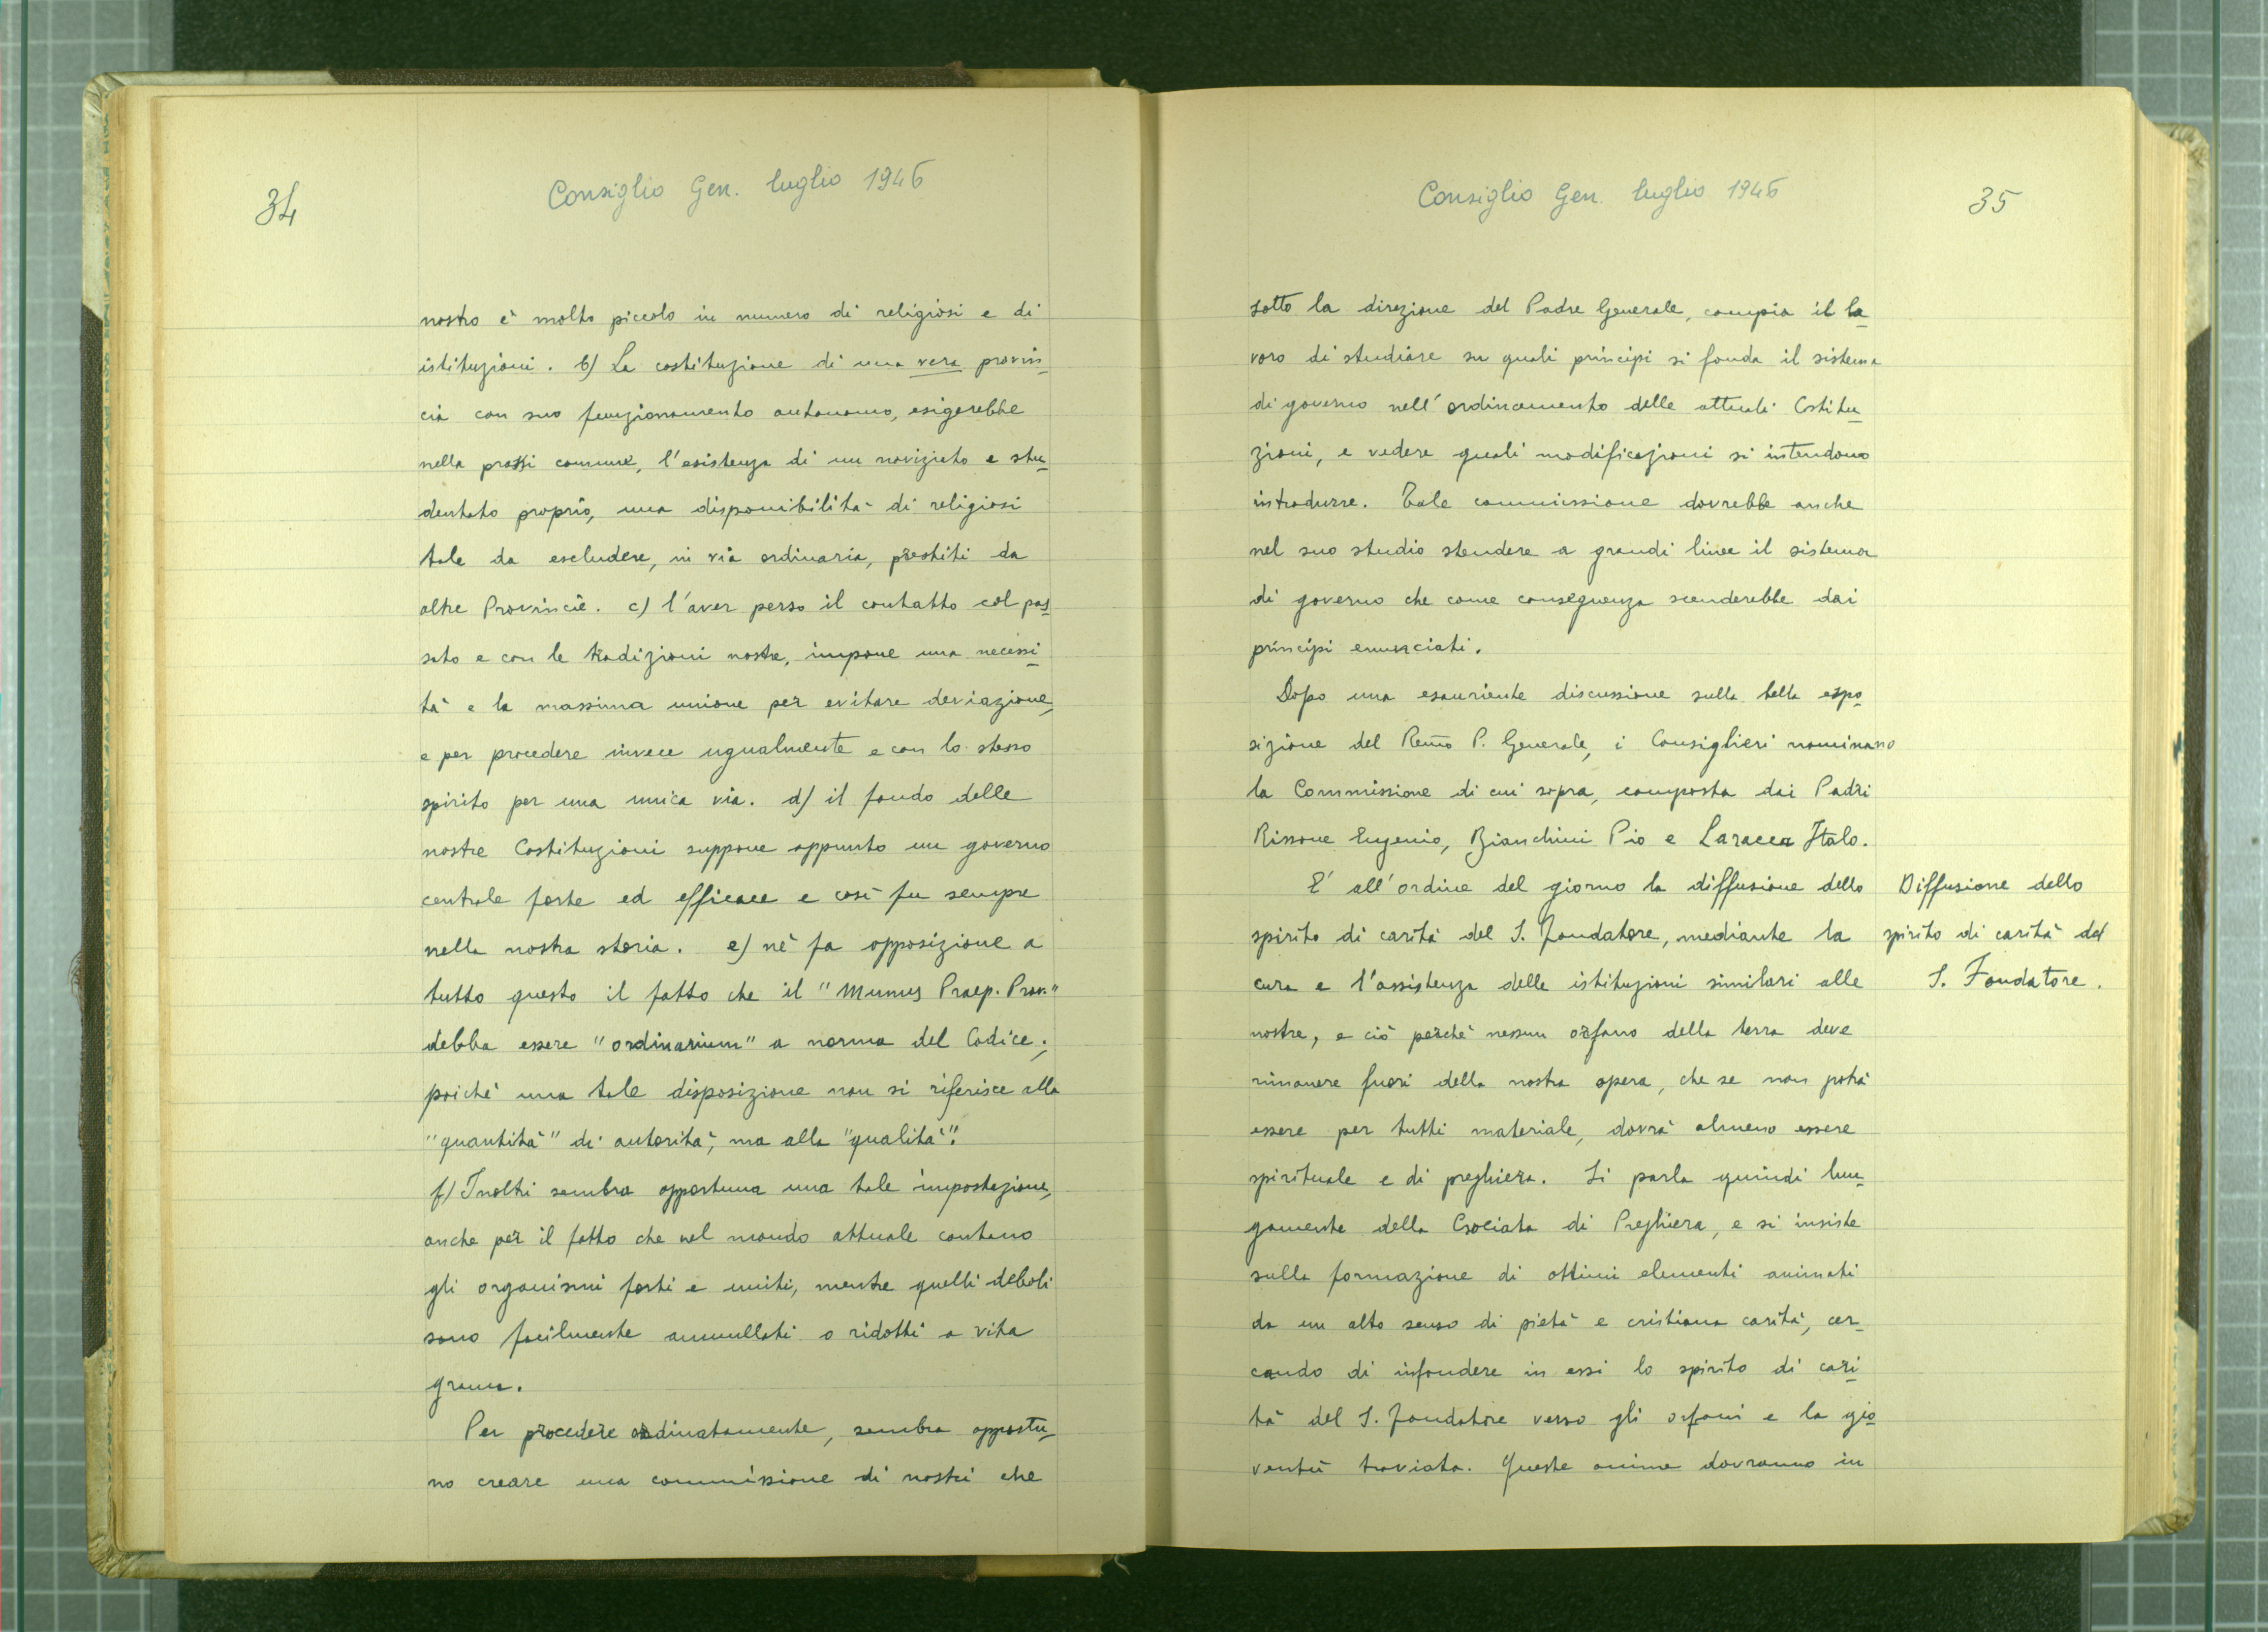 34
Consiglio Gen. luglio 1946
nostro è molto piccolo in numero di religiosi e di
istituzioni. b) La costituzione di una vera provin-
cia con suo funzionamento autonomo, esigerebbe
nella prassi comune, l'esistenza di un noviziato e stu-
dentato proprio, una disponibilità di religiosi
tale da escludere, in via ordinaria, prestiti da
altre Provincie. c) l'aver perso il contatto col pas-
sato e con le tradizioni nostre, impone una necessi-
tà e la massima unione per evitare deviazione,
e per procedere invece ugualmente e con lo stesso
spirito per una unica via. d) il fondo delle
nostre Costituzioni suppone appunto un governo
centrale forte ed efficace e così fu sempre
nella nostra storia. e) nè fa opposizione a
tutto questo il fatto che il "Munus Praep. Prov."
debba essere "ordinarium" a norma del Codice;
poichè una tale disposizione non si riferisce alla
"quantità" di autorità, ma alla "qualità".
f) Inoltri sembra opportuna una tale impostazione,
anche per il fatto che nel mondo attuale contano
gli organismi forti e uniti, mentre quelli deboli
sono facilmente annullati o ridotti a vita
grama.
Per procedere ordinatamente, sembra opportu-
no creare una commissione di nostri che
Consiglio Gen. luglio 1946
35
sotto la direzione del Padre Generale, compia il la-
voro di studiare su quali principi si fonda il sistema
di governo nell'ordinamento delle attuali Costitu-
zioni, e vedere quali modificazioni si intendono
introdurre. Tale commissione dovrebbe anche
nel suo studio stendere a grandi linee il sistema
di governo che come conseguenza scenderebbe dai
principi enunciati.
Dopo una esauriente discussione sulla bella espo-
sizione del Rev̄mo P. Generale, i Consiglieri nominano
la Commissione di cui sopra, composta dai Padri
Rissone Eugenio, Bianchini Pio e Laracca Italo.
E' all'ordine del giorno la diffusione dello
spirito di carità del S. Fondatore, mediante la
cura e l'assistenza delle istituzioni similari alle
nostre, e ciò perchè nessun orfano della terra deve
rimanere fuori della nostra opera, che se non potrà
essere per tutti materiale, dovrà almeno essere
spirituale e di preghiera. Si parla quindi lun-
gamente della Crociata di Preghiera, e si insiste
sulla formazione di ottimi elementi animati
da un alto senso di pietà e cristiana carità, cer-
cando di infondere in essi lo spirito di cari-
tà del S. Fondatore verso gli orfani e la gio-
ventù traviata. Queste anime dovranno in
Diffusione dello
spirito di carità del
S. Fondatore.